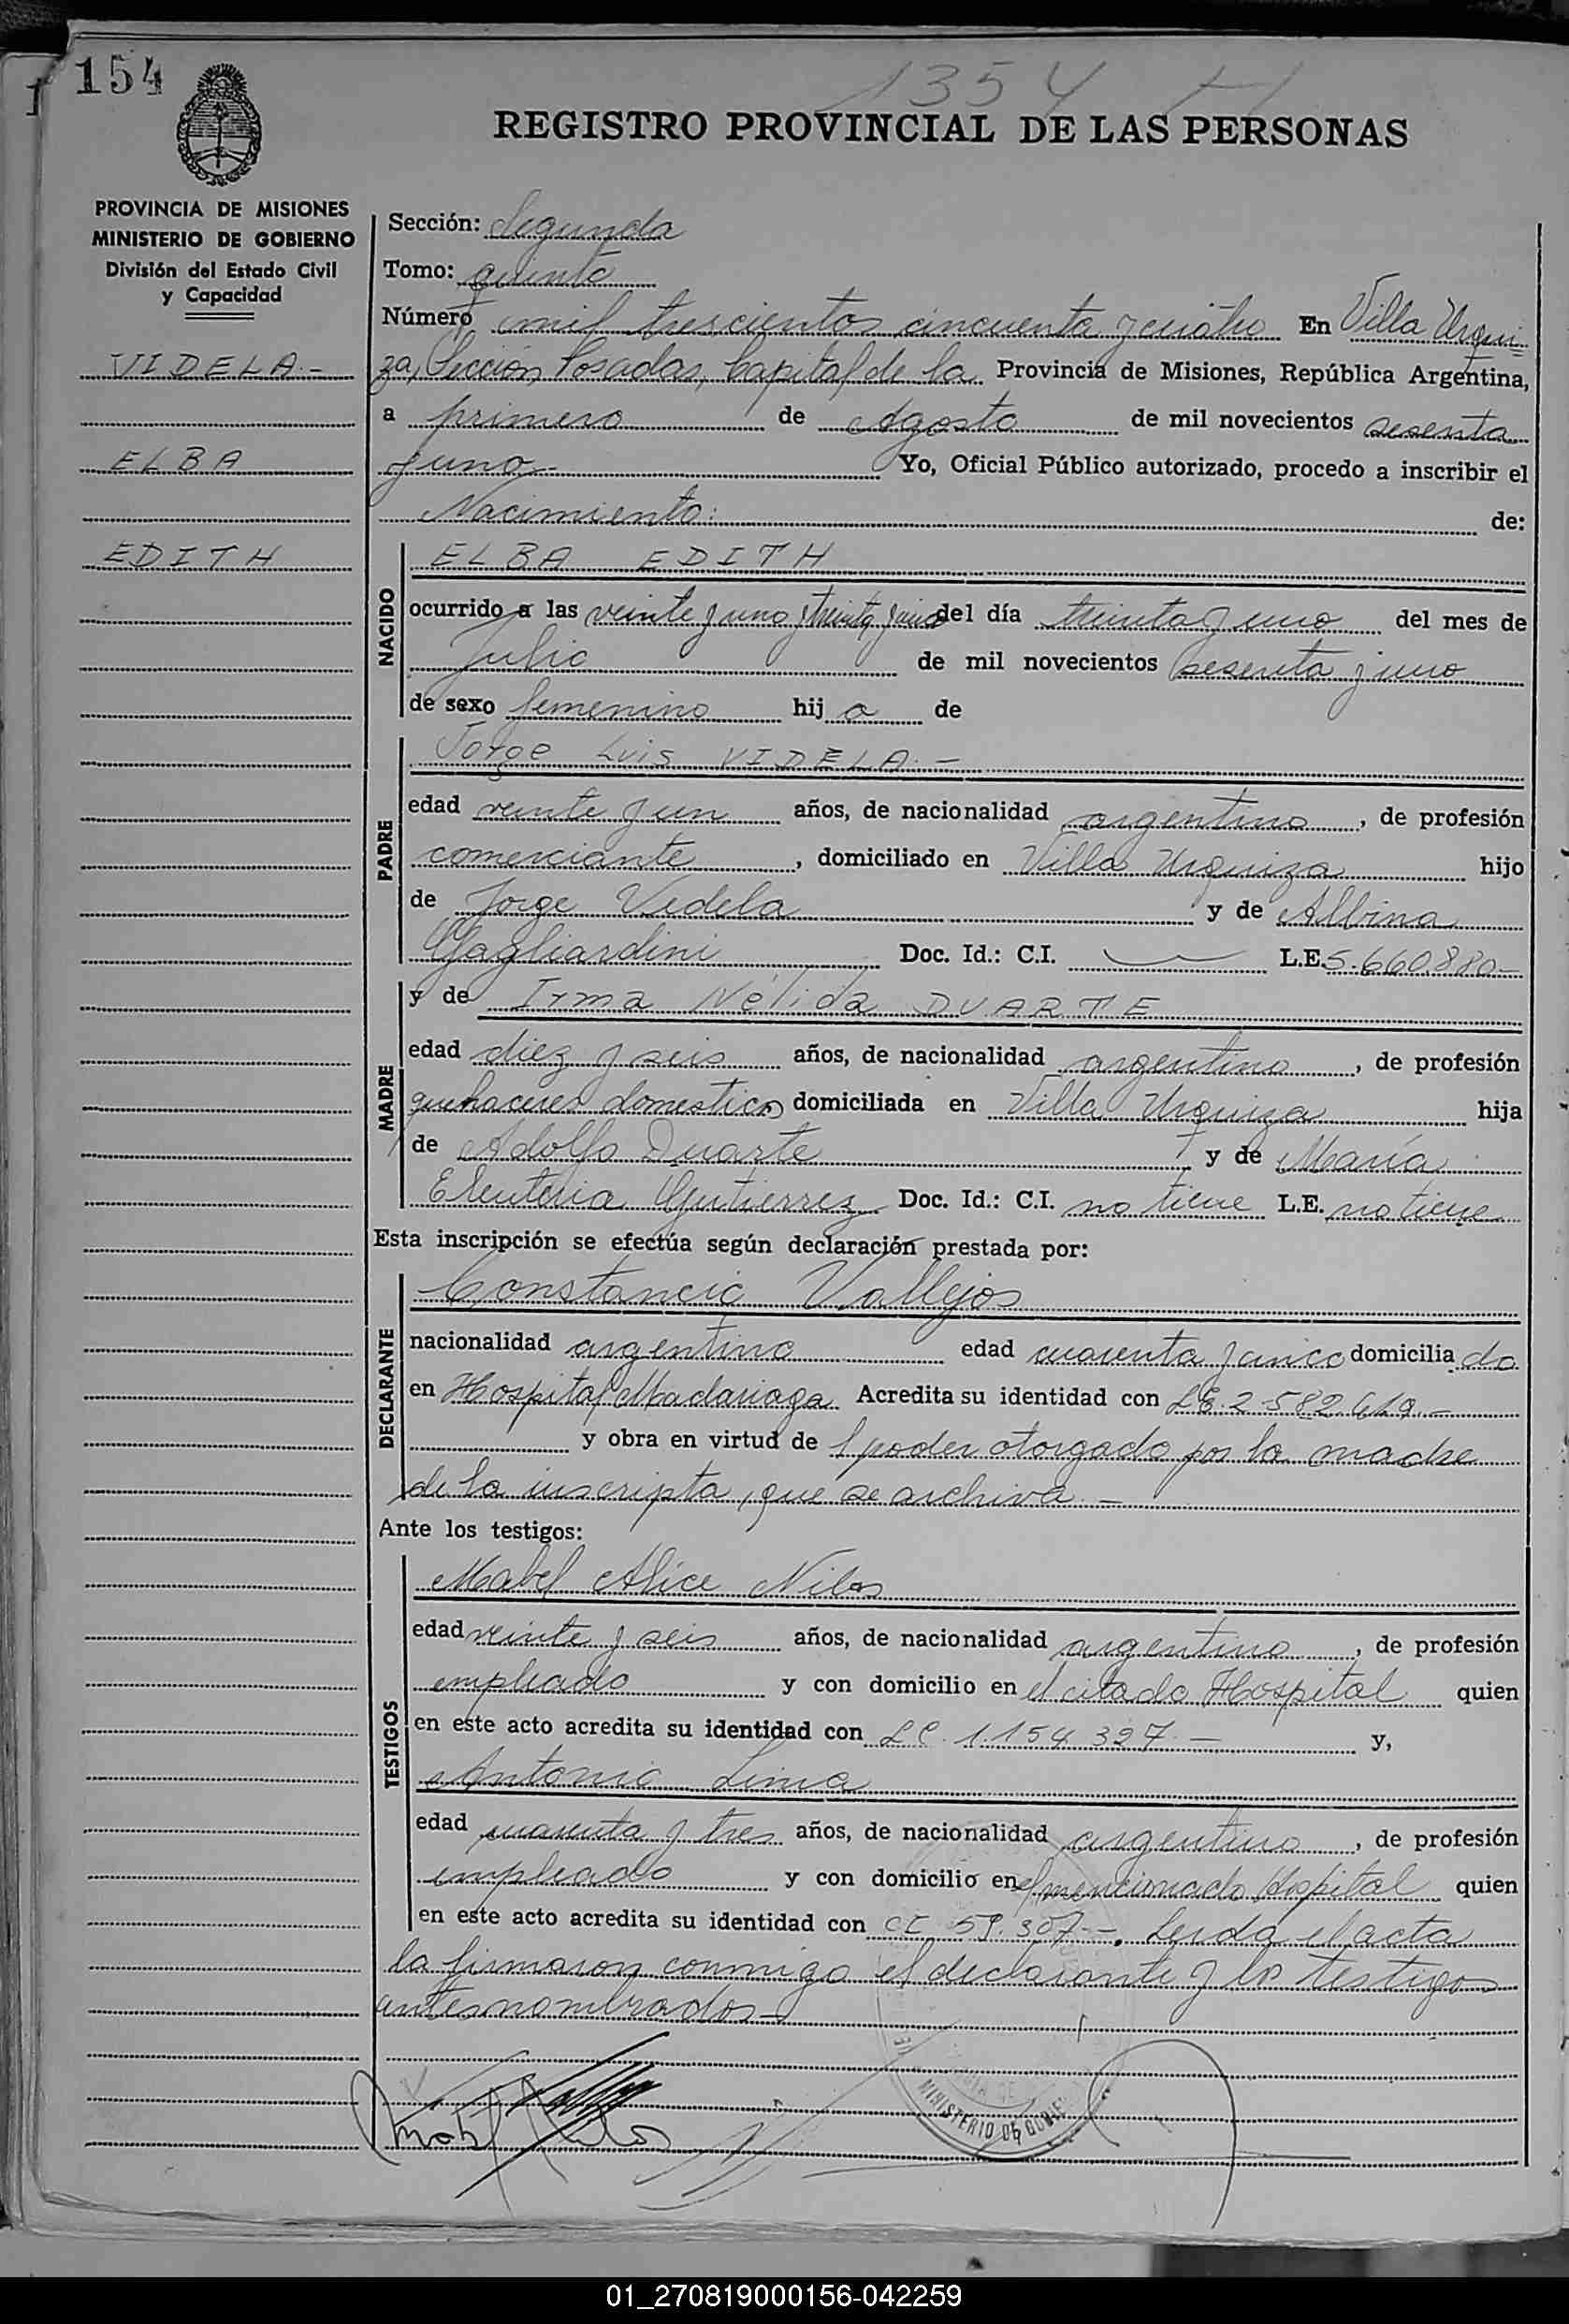 154
1354
REGISTRO PROVINCIAL DE LAS PERSONAS
PROVINCIA DE MISIONES
MINISTERIO DE GOBIERNO
División del Estado Civil
y Capacidad
VIDELA.-
ELBA
EDITH
Sección: Segunda
Tomo: quinto
Número mil trescientos cincuenta y cuatro En Villa Urqui
za, Sección Posadas, Capital de la Provincia de Misiones, República Argentina,
a primero de Agosto de mil novecientos sesenta
y uno.- Yo, Oficial Público autorizado, procedo a inscribir el
Nacimiento: de:
NACIDO
ELBA EDITH
ocurrido a las veinte y uno y treinta y cinco del día treinta y uno del mes de
Julio de mil novecientos sesenta y uno
de sexo femenino hij a de
PADRE
Jorge Luis VIDELA.-
edad veinte y un años, de nacionalidad argentino, de profesión
comerciante, domiciliado en Villa Urquiza hijo
de Jorge Videla y de Albina
Gagliardini Doc. Id.: C.I. L.E. 5.660.880-
MADRE
y de Irma Nélida DUARTE
edad diez y seis años, de nacionalidad argentina, de profesión
quehaceres domesticos domiciliada en Villa Urquiza hija
de Adolfo Duarte y de María
Eleuteria Gutierrez Doc. Id.: C.I. no tiene L.E. no tiene
Esta inscripción se efectúa según declaración prestada por:
DECLARANTE
Constancio Vallejos
nacionalidad argentino edad cuarenta y cinco domicilia do
en Hospital Madariaga Acredita su identidad con LE. 2.582.619.-
y obra en virtud de l poder otorgado por la madre
de la inscripta, que se archiva.-
Ante los testigos:
TESTIGOS
Mabel Alice Nilos
edad veinte y seis años, de nacionalidad argentina, de profesión
empleado y con domicilio en el citado Hospital quien
en este acto acredita su identidad con LC. 1.154.327.- y,
Antonio Lima
edad cuarenta y tres años, de nacionalidad argentino, de profesión
empleado y con domicilio en el mencionado Hospital quien
en este acto acredita su identidad con CI 59.307.-. Leida el acta
la firmaron conmigo el declarante y los testigos
antes nombrados-
MINISTERIO DE GOBIE
01_270819000156-042259